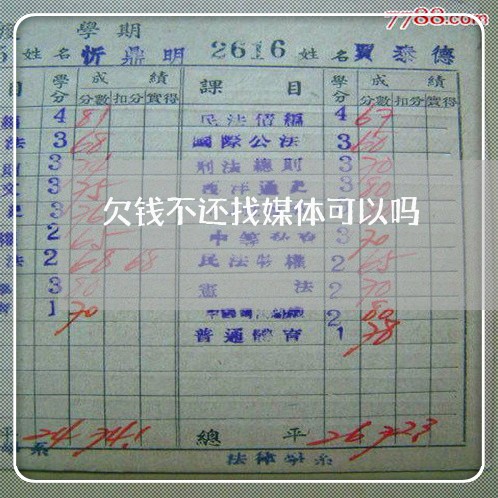 7788.com
學期
姓名 忻鼎明 2616 姓名 賈泰德
目 學分 成績 課目 學分 成績
分數 扣分 實得 分數 扣分 實得
4 81 民法債編 4 67
法 3 68 國際公法 3 60
3 刑法總則 3 70
3 75 西洋通史 3 80
欠钱不还找媒体可以吗
2 65 3 70
法 2 68 68 民法物權 2 65
3 80 憲法 2 70
1 70 2 80
普通體育 1 78
24 74.1 總平 26 72.3
系 法律學系